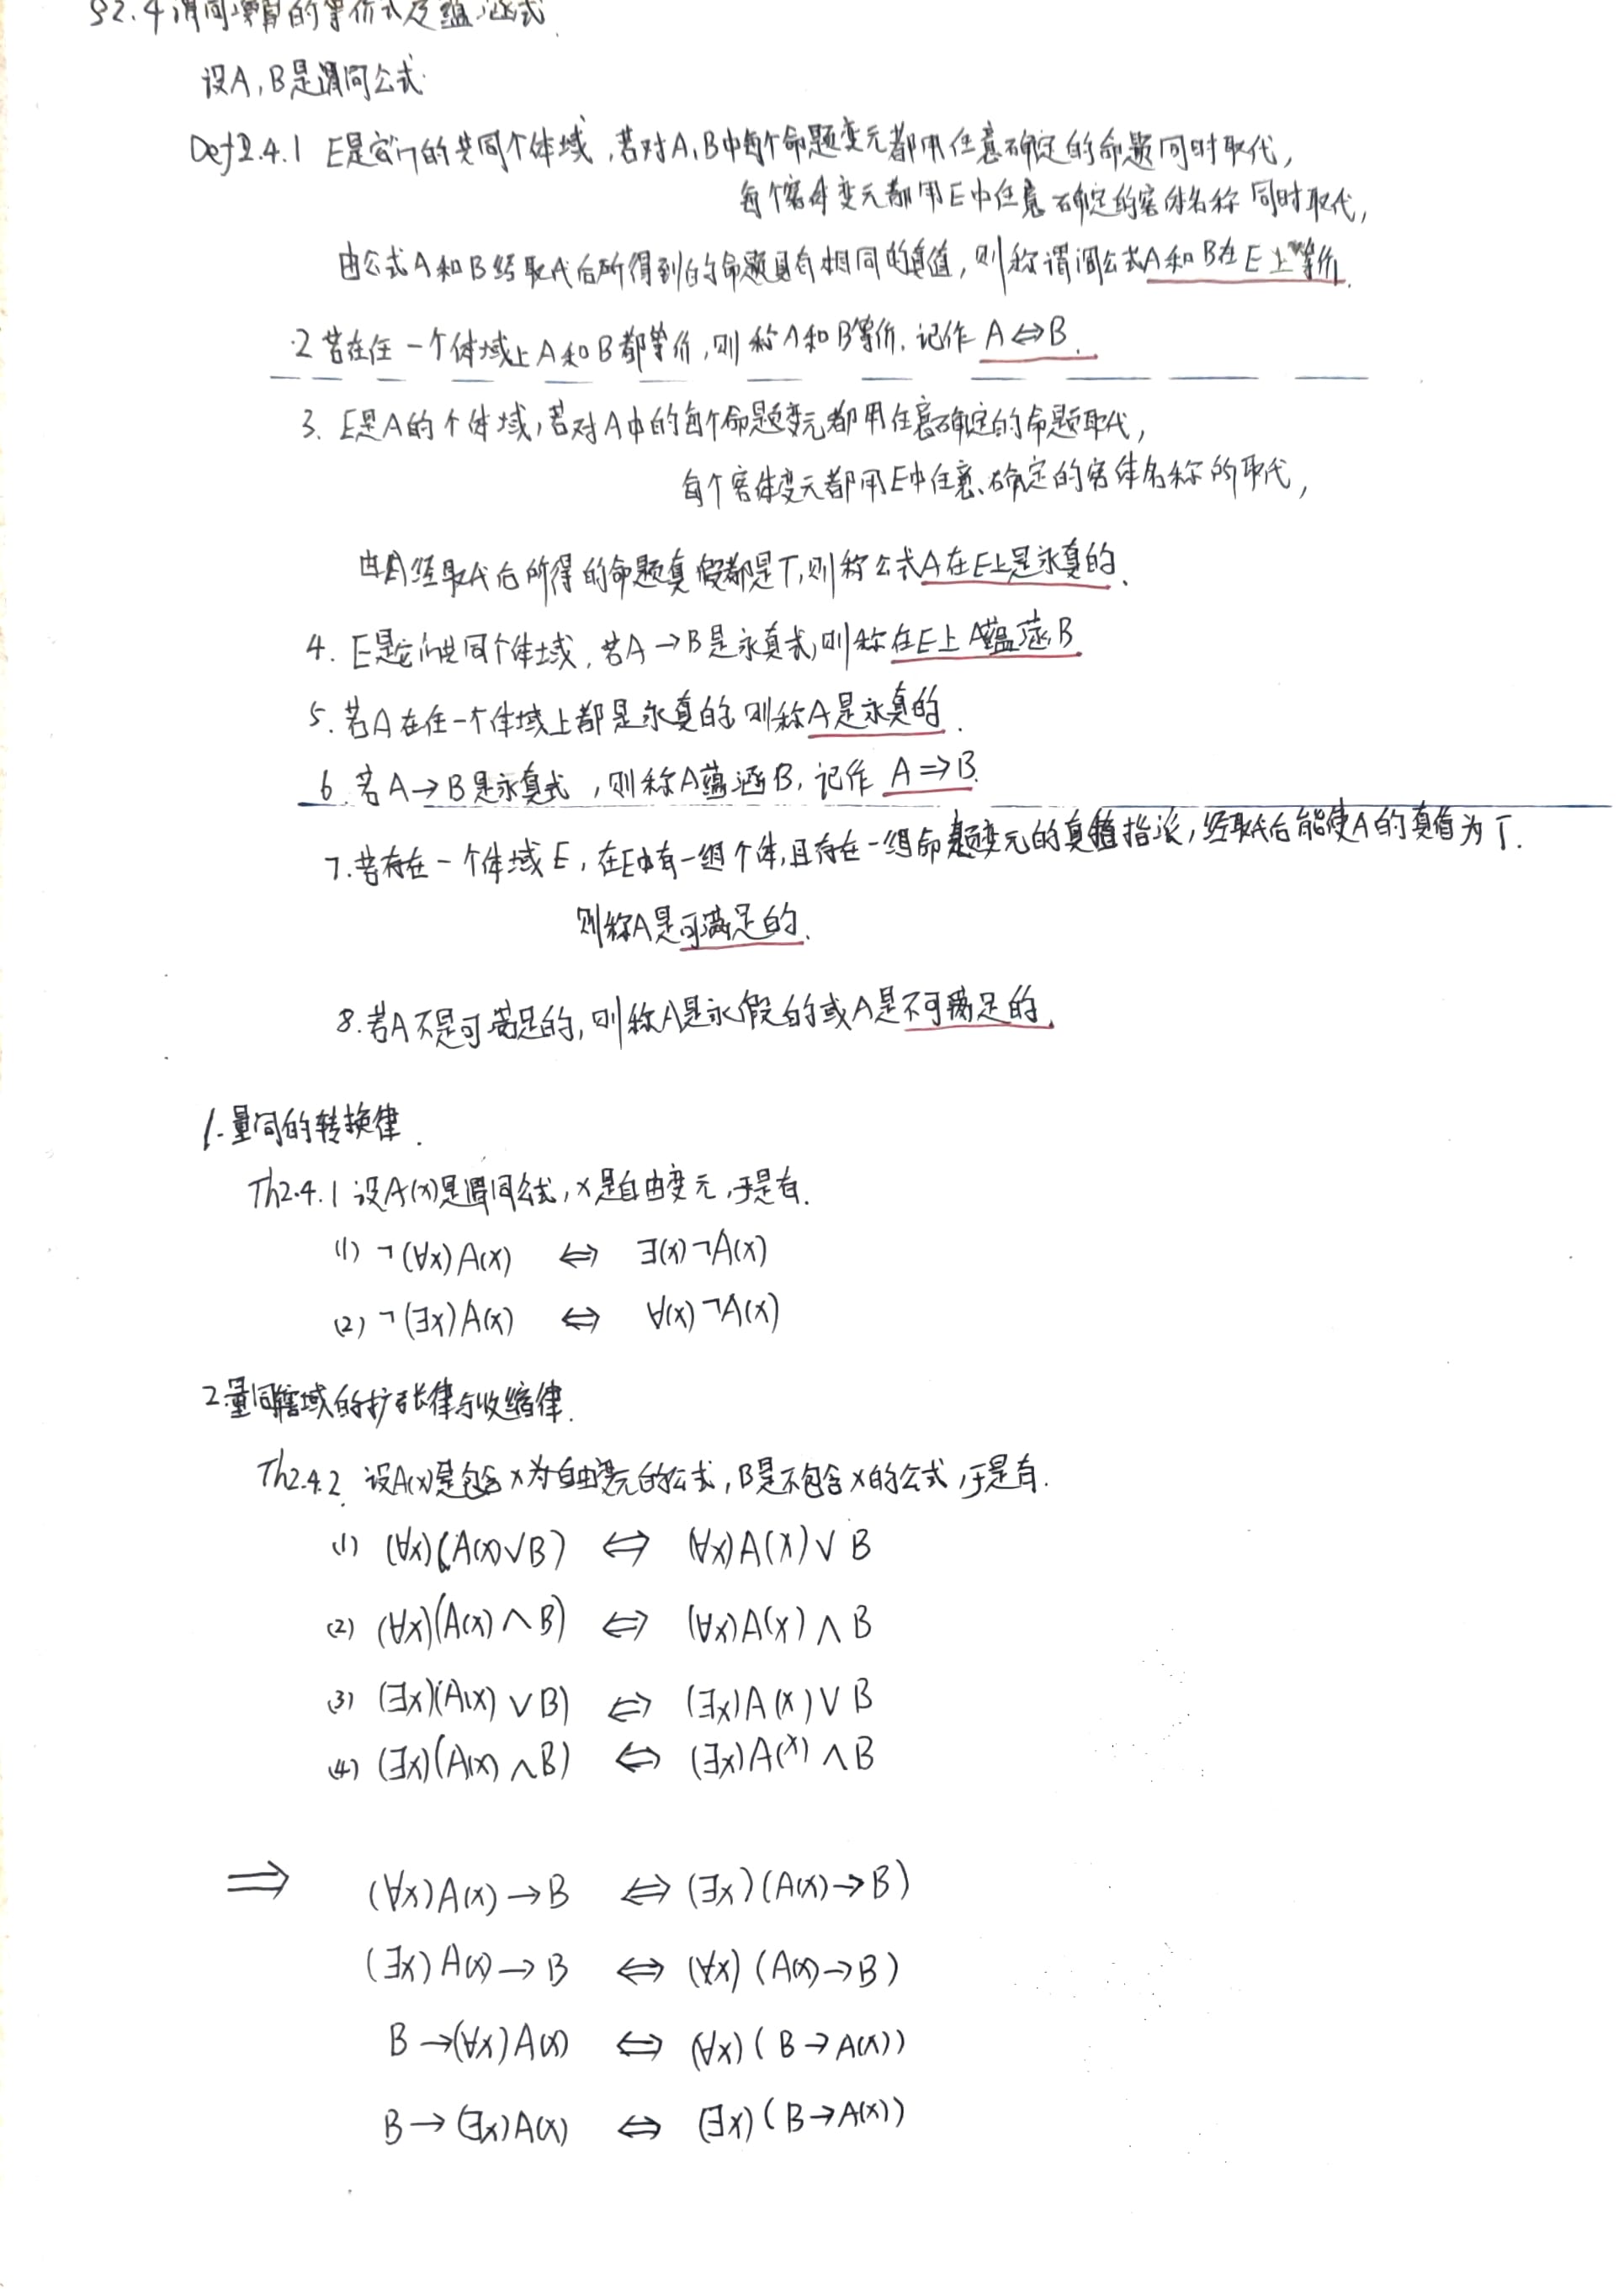 §2.4 谓词演算的等价式及蕴涵式.
设A, B是谓词公式.
Def2.4.1 E是它们的共同个体域,若对A,B中每个命题变元都用任意确定的命题同时取代,
每个客体变元都用E中任意确定的客体名称同时取代,
由公式A和B经取代后所得到的命题具有相同的真值,则称谓词公式A和B在E上等价.
.2 若在任一个体域上A和B都等价,则称A和B等价.记作 A⇔B.
3. E是A的个体域,若对A中的每个命题变元都用任意确定的命题取代,
每个客体变元都用E中任意、确定的客体名称的取代,
由A经取代后所得的命题真假都是T,则称公式A在E上是永真的.
4. E是它们共同个体域,若A→B是永真式,则称在E上A蕴涵B
5. 若A在任一个体域上都是永真的 则称A是永真的.
6. 若A→B是永真式,则称A蕴涵B,记作 A⇒B.
7. 若存在一个体域E,在E中有一组个体,且存在一组命题变元的真值指派,经取代后能使A的真值为T.
则称A是可满足的.
8. 若A不是可满足的,则称A是永假的或A是不可满足的.
1.量词的转换律.
Th2.4.1 设A(x)是谓词公式,x是自由变元,于是有.
(1) ¬(∀x)A(x) ⇔ ∃(x)¬A(x)
(2) ¬(∃x)A(x) ⇔ ∀(x)¬A(x)
2.量词辖域的扩张律与收缩律.
Th2.4.2. 设A(x)是包含x为自由变元的公式,B是不包含x的公式,于是有.
(1) (∀x)(A(x)∨B) ⇔ (∀x)A(x)∨B
(2) (∀x)(A(x)∧B) ⇔ (∀x)A(x)∧B
(3) (∃x)(A(x)∨B) ⇔ (∃x)A(x)∨B
(4) (∃x)(A(x)∧B) ⇔ (∃x)A(x)∧B
⇒ (∀x)A(x)→B ⇔ (∃x)(A(x)→B)
(∃x)A(x)→B ⇔ (∀x)(A(x)→B)
B→(∀x)A(x) ⇔ (∀x)(B→A(x))
B→(∃x)A(x) ⇔ (∃x)(B→A(x))